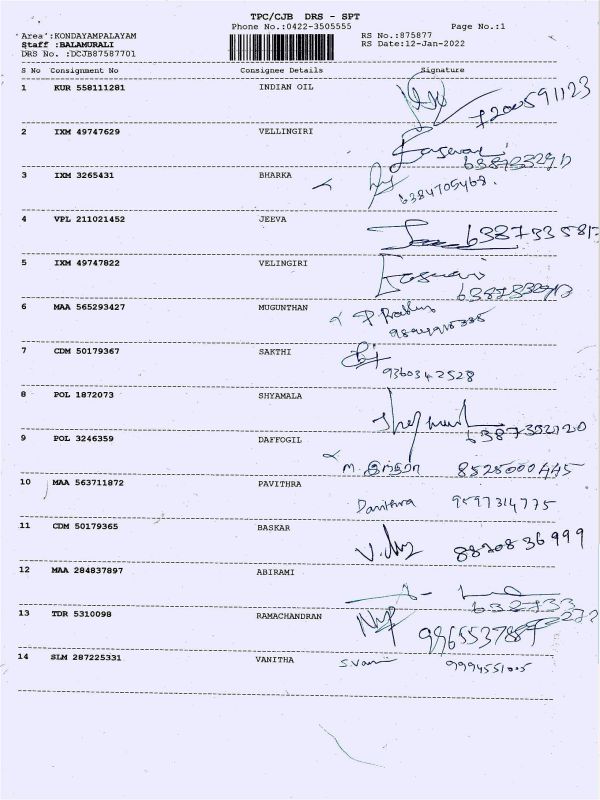 TPC/CJB DRS - SPT
Phone No.:0422-3505555 Page No.:1
Area :KONDAYAMPALAYAM RS No.:875877
Staff :BALAMURALI RS Date:12-Jan-2022
DRS No. :DCJB87587701
S No Consignment No Consignee Details Signature
1 KUR 558111281 INDIAN OIL 7200591123
2 IXM 49747629 VELLINGIRI
3 IXM 3265431 BHARKA 6384705468.
4 VPL 211021452 JEEVA
5 IXM 49747822 VELINGIRI
6 MAA 565293427 MUGUNTHAN
7 CDM 50179367 SAKTHI 9360342528
8 POL 1872073 SHYAMALA
9 POL 3246359 DAFFOGIL 8525000445
10 MAA 563711872 PAVITHRA 9597314775
11 CDM 50179365 BASKAR 8820836999
12 MAA 284837897 ABIRAMI
13 TDR 5310098 RAMACHANDRAN
14 SLM 287225331 VANITHA 9994551005